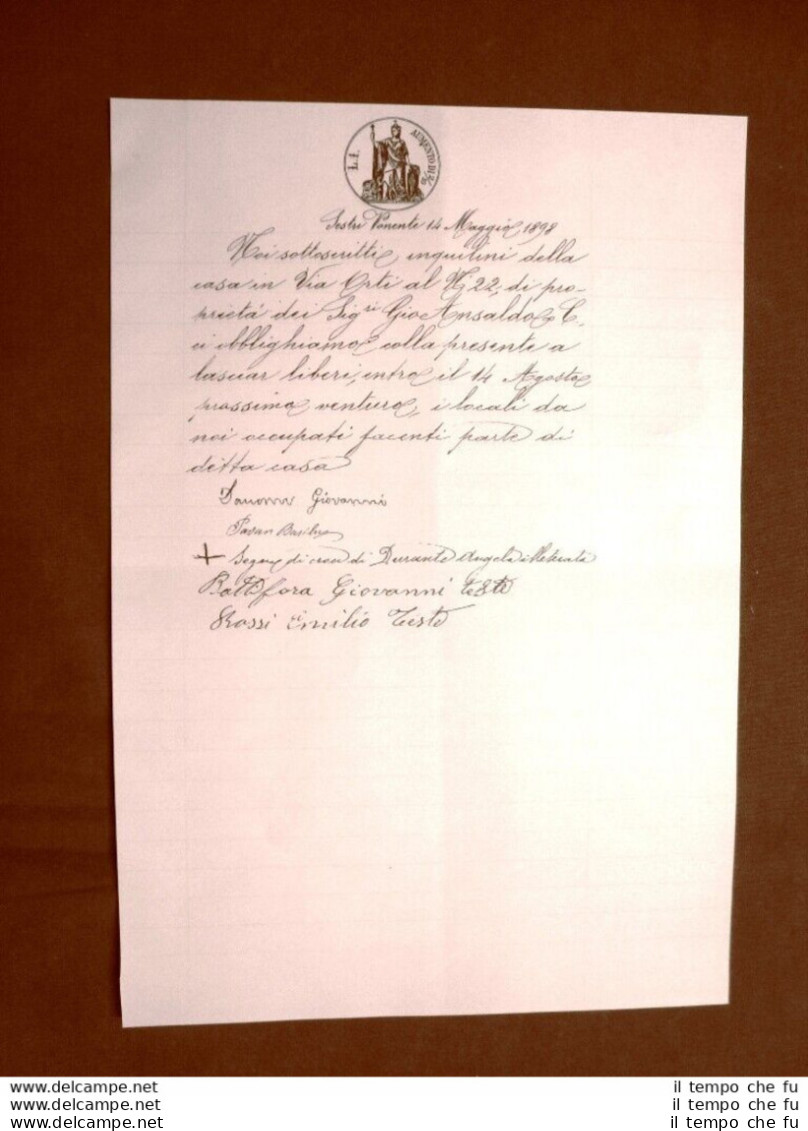 L. 1. AUMENTO DI 2/10
Sestri Ponente 14 Maggio 1898
Noi sottoscritti, inquilini della
casa in Via Orti al N. 22, di pro-
prietá dei Sigri Gio Ansaldo e C.
ci obblighiamo colla presente a
lasciar liberi, entro il 14 Agosto
prossimo venturo, i locali da
noi occupati facenti parte di
detta casa
Giovanni
Pavan
+ Segno di croce di Durante Angela illetterata
Battifora Giovanni teste
Rossi Emilio Teste
www.delcampe.net
www.delcampe.net
www.delcampe.net
il tempo che fu
il tempo che fu
il tempo che fu